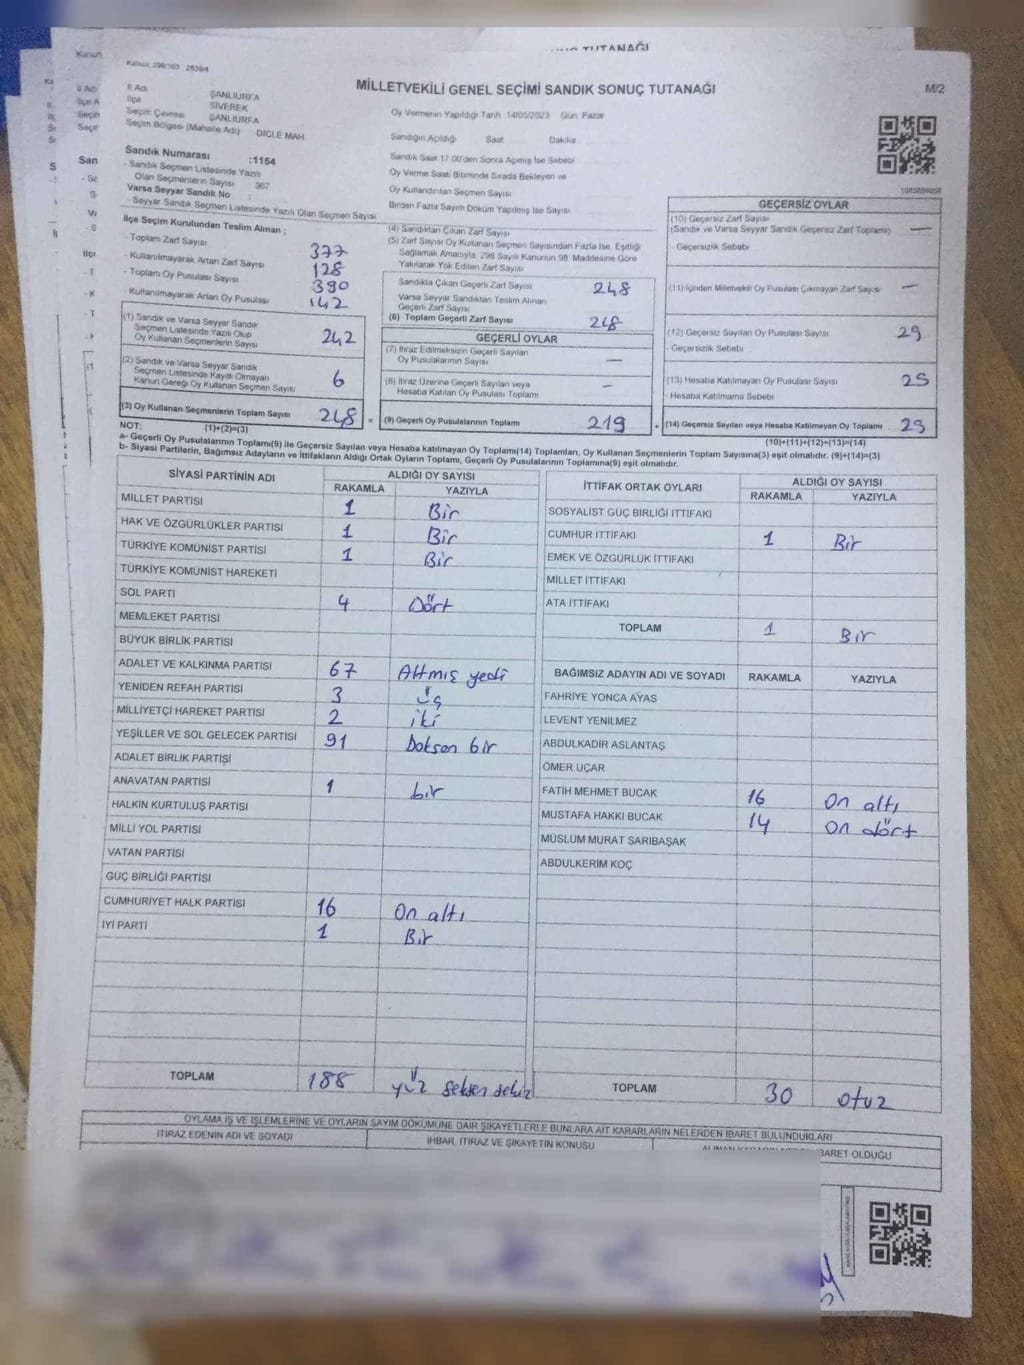 TUTANAĞI
MİLLETVEKİLİ GENEL SEÇİMİ SANDIK SONUÇ TUTANAĞI
M/2
İl Adı ŞANLIURFA
İlçe SİVEREK
Seçim Çevresi ŞANLIURFA
Seçim Bölgesi (Mahalle Adı) DİCLE MAH.
Oy Vermenin Yapıldığı Tarih 14/05/2023 Gün Pazar
Sandığın Açıldığı Saat Dakika
Sandık Saat 17.00'den Sonra Açılmış İse Sebebi
Oy Verme Saati Bitiminde Sırada Bekleyen ve
Oy Kullandırılan Seçmen Sayısı
Birden Fazla Sayım Döküm Yapılmış İse Sayısı
Sandık Numarası :1154
- Sandık Seçmen Listesinde Yazılı
Olan Seçmenlerin Sayısı : 367
Varsa Seyyar Sandık No :
- Seyyar Sandık Seçmen Listesinde Yazılı Olan Seçmen Sayısı
İlçe Seçim Kurulundan Teslim Alınan ;
- Toplam Zarf Sayısı 377
- Kullanılmayarak Artan Zarf Sayısı 128
- Toplam Oy Pusulası Sayısı 390
- Kullanılmayarak Artan Oy Pusulası 142
(1) Sandık ve Varsa Seyyar Sandık
Seçmen Listesinde Yazılı Olup
Oy Kullanan Seçmenlerin Sayısı 242
(2) Sandık ve Varsa Seyyar Sandık
Seçmen Listesinde Kayıtlı Olmayan
Kanun Gereği Oy Kullanan Seçmen Sayısı 6
(3) Oy Kullanan Seçmenlerin Toplam Sayısı 248 =
(4) Sandıktan Çıkan Zarf Sayısı
(5) Zarf Sayısı Oy Kullanan Seçmen Sayısından Fazla İse, Eşitliği
Sağlamak Amacıyla, 298 Sayılı Kanunun 98. Maddesine Göre
Yakılarak Yok Edilen Zarf Sayısı
Sandıkta Çıkan Geçerli Zarf Sayısı 248
Varsa Seyyar Sandıktan Teslim Alınan
Geçerli Zarf Sayısı
(6) Toplam Geçerli Zarf Sayısı 248
GEÇERLİ OYLAR
(7) İtiraz Edilmeksizin Geçerli Sayılan
Oy Pusulalarının Sayısı —
(8) İtiraz Üzerine Geçerli Sayılan veya
Hesaba Katılan Oy Pusulaları Toplamı —
(9) Geçerli Oy Pusulalarının Toplamı 219 +
GEÇERSİZ OYLAR
(10) Geçersiz Zarf Sayısı
(Sandık ve Varsa Seyyar Sandık Geçersiz Zarf Toplamı) —
- Geçersizlik Sebebi
(11) İçinden Milletvekili Oy Pusulası Çıkmayan Zarf Sayısı —
(12) Geçersiz Sayılan Oy Pusulası Sayısı 29
- Geçersizlik Sebebi
(13) Hesaba Katılmayan Oy Pusulası Sayısı
- Hesaba Katılmama Sebebi
(14) Geçersiz Sayılan veya Hesaba Katılmayan Oy Toplamı 29
NOT: (1)+(2)=(3)
(10)+(11)+(12)+(13)=(14)
a- Geçerli Oy Pusulalarının Toplamı(9) ile Geçersiz Sayılan veya Hesaba katılmayan Oy Toplamı(14) Toplamları, Oy Kullanan Seçmenlerin Toplam Sayısına(3) eşit olmalıdır. (9)+(14)=(3)
b- Siyasi Partilerin, Bağımsız Adayların ve İttifakların Aldığı Ortak Oyların Toplamı, Geçerli Oy Pusulalarının Toplamına(9) eşit olmalıdır.
SİYASİ PARTİNİN ADI ALDIĞI OY SAYISI
RAKAMLA YAZIYLA
MİLLET PARTİSİ 1 Bir
HAK VE ÖZGÜRLÜKLER PARTİSİ 1 Bir
TÜRKİYE KOMÜNİST PARTİSİ 1 Bir
TÜRKİYE KOMÜNİST HAREKETİ
SOL PARTİ 4 Dört
MEMLEKET PARTİSİ
BÜYÜK BİRLİK PARTİSİ
ADALET VE KALKINMA PARTİSİ 67 Altmış yedi
YENİDEN REFAH PARTİSİ 3 üç
MİLLİYETÇİ HAREKET PARTİSİ 2 iki
YEŞİLLER VE SOL GELECEK PARTİSİ 91 Doksan bir
ADALET BİRLİK PARTİSİ
ANAVATAN PARTİSİ 1 bir
HALKIN KURTULUŞ PARTİSİ
MİLLİ YOL PARTİSİ
VATAN PARTİSİ
GÜÇ BİRLİĞİ PARTİSİ
CUMHURİYET HALK PARTİSİ 16 On altı
İYİ PARTİ 1 Bir
TOPLAM 188 yüz seksen sekiz
İTTİFAK ORTAK OYLARI ALDIĞI OY SAYISI
RAKAMLA YAZIYLA
SOSYALİST GÜÇ BİRLİĞİ İTTİFAKI
CUMHUR İTTİFAKI 1 Bir
EMEK VE ÖZGÜRLÜK İTTİFAKI
MİLLET İTTİFAKI
ATA İTTİFAKI
TOPLAM 1 Bir
BAĞIMSIZ ADAYIN ADI VE SOYADI RAKAMLA YAZIYLA
FAHRİYE YONCA AYAS
LEVENT YENİLMEZ
ABDULKADİR ASLANTAŞ
ÖMER UÇAR
FATİH MEHMET BUCAK 16 On altı
MUSTAFA HAKKI BUCAK 14 On dört
MÜSLÜM MURAT SARIBAŞAK
ABDULKERİM KOÇ
TOPLAM 30 otuz
OYLAMA İŞ VE İŞLEMLERİNE VE OYLARIN SAYIM DÖKÜMÜNE DAİR ŞİKAYETLERLE BUNLARA AİT KARARLARIN NELERDEN İBARET BULUNDUKLARI
İTİRAZ EDENİN ADI VE SOYADI
İHBAR, İTİRAZ VE ŞİKAYETİN KONUSU
BARET OLDUĞU